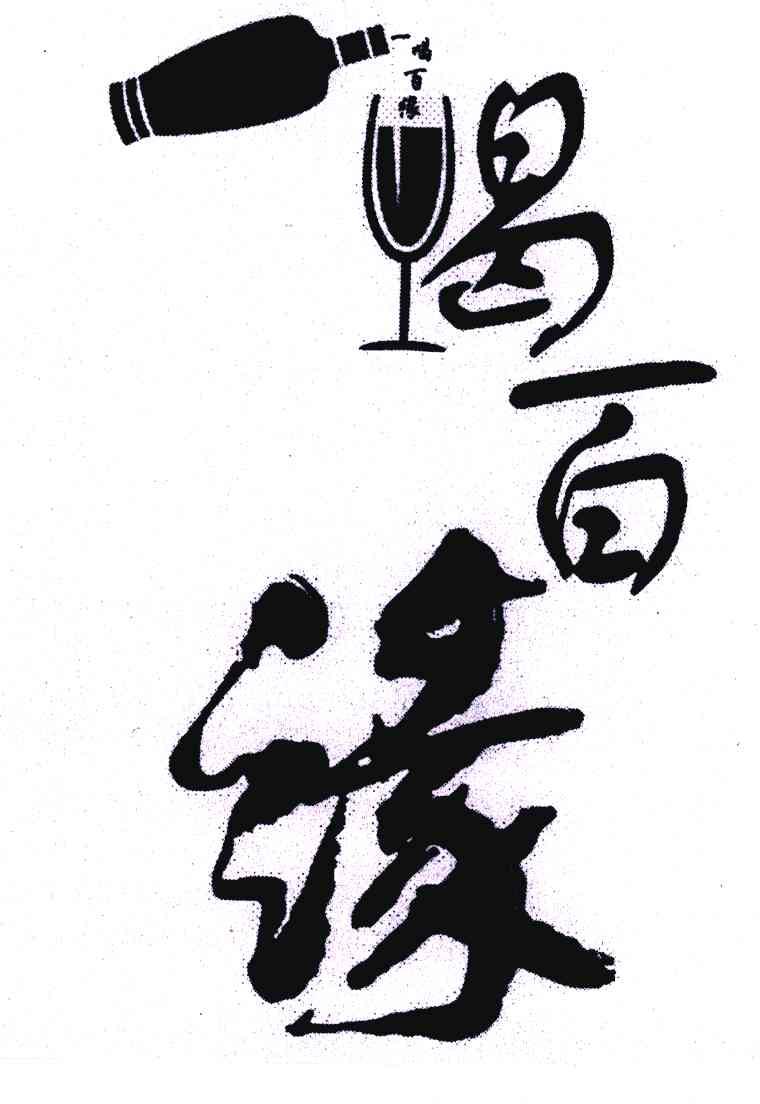 一喝百缘
喝百缘